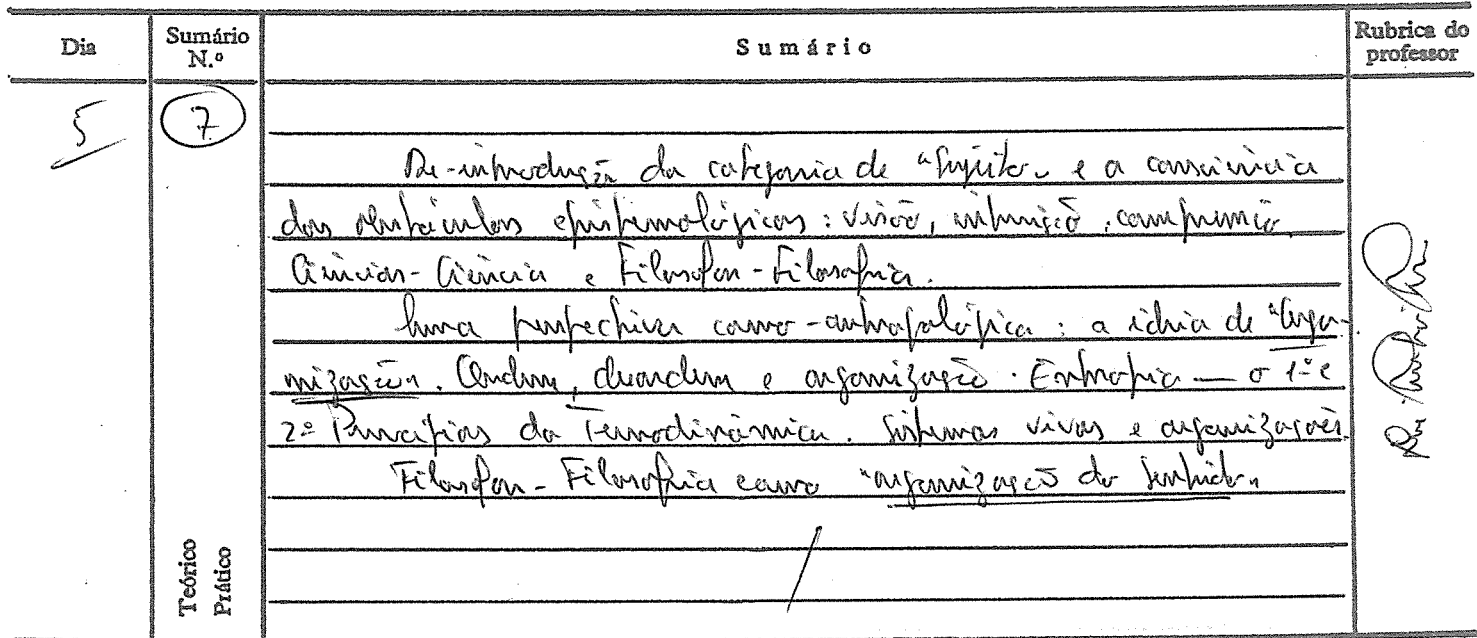 Dia
Sumário N.º
Sumário
Rubrica do professor
5
7
Re-introdução da categoria de "Sujeito" e a consciência
dos obstáculos epistemológicos: visão, intuição, compreensão.
Ciências-Ciência e Filosofar-Filosofia.
Uma perspectiva cosmo-antropológica: a ideia de "Orga-
nização". Ordem, desordem e organização. Entropia — o 1º e
2º Princípios da Termodinâmica. Sistemas vivos e organizações.
Filosofar-Filosofia como "organização do sentido"
Teórico
Prático